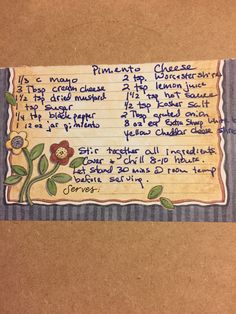 Pimento Cheese
1/3 c mayo
3 Tbsp cream cheese
1/2 tsp dried mustard
1 tsp sugar
1/4 tsp black pepper
1 12 oz jar pimento
2 tsp. Worcestershire
2 tsp lemon juice
1 1/2 tsp hot sauce
1/2 tsp Kosher Salt
2 Tbsp grated onion
8 oz ea Extra Sharp
yellow Cheddar cheese
Stir together all ingredients
Cover & chill 8-10 hours.
Let stand 30 mins @ room temp
before serving.
Serves: